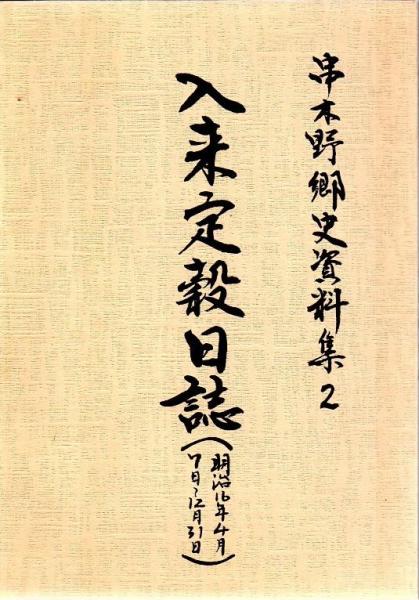 串木野郷史資料集2
入来定穀日誌(明治16年4月
7日~12月31日)